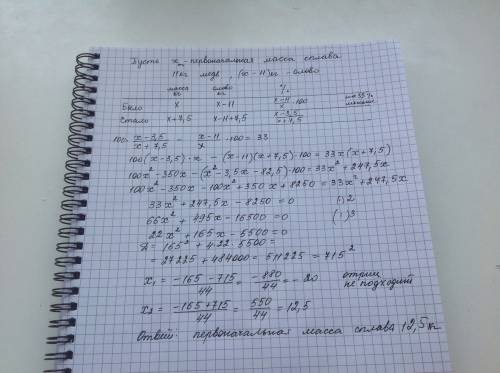 Пусть х - первоначальная масса сплава
11 кг медь, (х - 11) кг - олово
масса кг олово кг %
Было х х - 11 х-11/х · 100 на 33% меньше
Стало х + 7,5 х - 11 + 7,5 х-3,5/х+7,5
100 · х-3,5/х+7,5 - х-11/х · 100 = 33
100(х - 3,5) · х - (х - 11)(х + 7,5) · 100 = 33х(х + 7,5)
100х² - 350х - (х² - 3,5х - 82,5) · 100 = 33х² + 247,5х
100х² - 350х - 100х² + 350х + 8250 = 33х² + 247,5х
33х² + 247,5х - 8250 = 0 (·) 2
66х² + 495х - 16500 = 0 (:) 3
22х² + 165х - 5500 = 0
Д = 165² + 4·22·5500 =
= 27225 + 484000 = 511225 = 715²
х₁ = -165 - 715/44 = -880/44 = - 20 отриц не подходит
х₂ = -165 + 715/44 = 550/44 = 12,5
Ответ: первоначальная масса сплава 12,5 кг